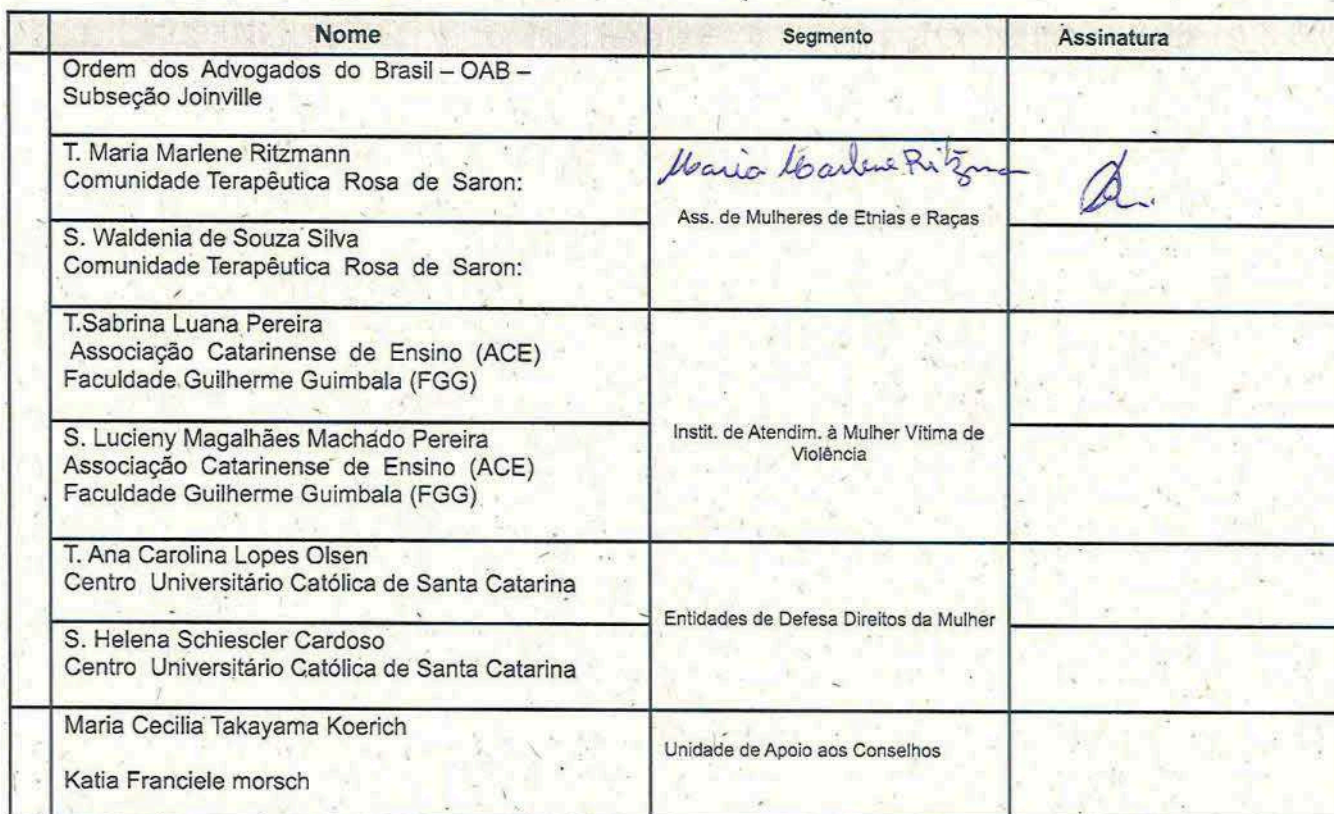 Nome Segmento Assinatura
Ordem dos Advogados do Brasil – OAB –
Subseção Joinville
T. Maria Marlene Ritzmann
Comunidade Terapêutica Rosa de Saron:
Maria Marlene Ritzman
Ass. de Mulheres de Etnias e Raças
S. Waldenia de Souza Silva
Comunidade Terapêutica Rosa de Saron:
T.Sabrina Luana Pereira
Associação Catarinense de Ensino (ACE)
Faculdade Guilherme Guimbala (FGG)
Instit. de Atendim. à Mulher Vítima de
Violência
S. Lucieny Magalhães Machado Pereira
Associação Catarinense de Ensino (ACE)
Faculdade Guilherme Guimbala (FGG)
T. Ana Carolina Lopes Olsen
Centro Universitário Católica de Santa Catarina
Entidades de Defesa Direitos da Mulher
S. Helena Schiescler Cardoso
Centro Universitário Católica de Santa Catarina
Maria Cecilia Takayama Koerich
Unidade de Apoio aos Conselhos
Katia Franciele morsch